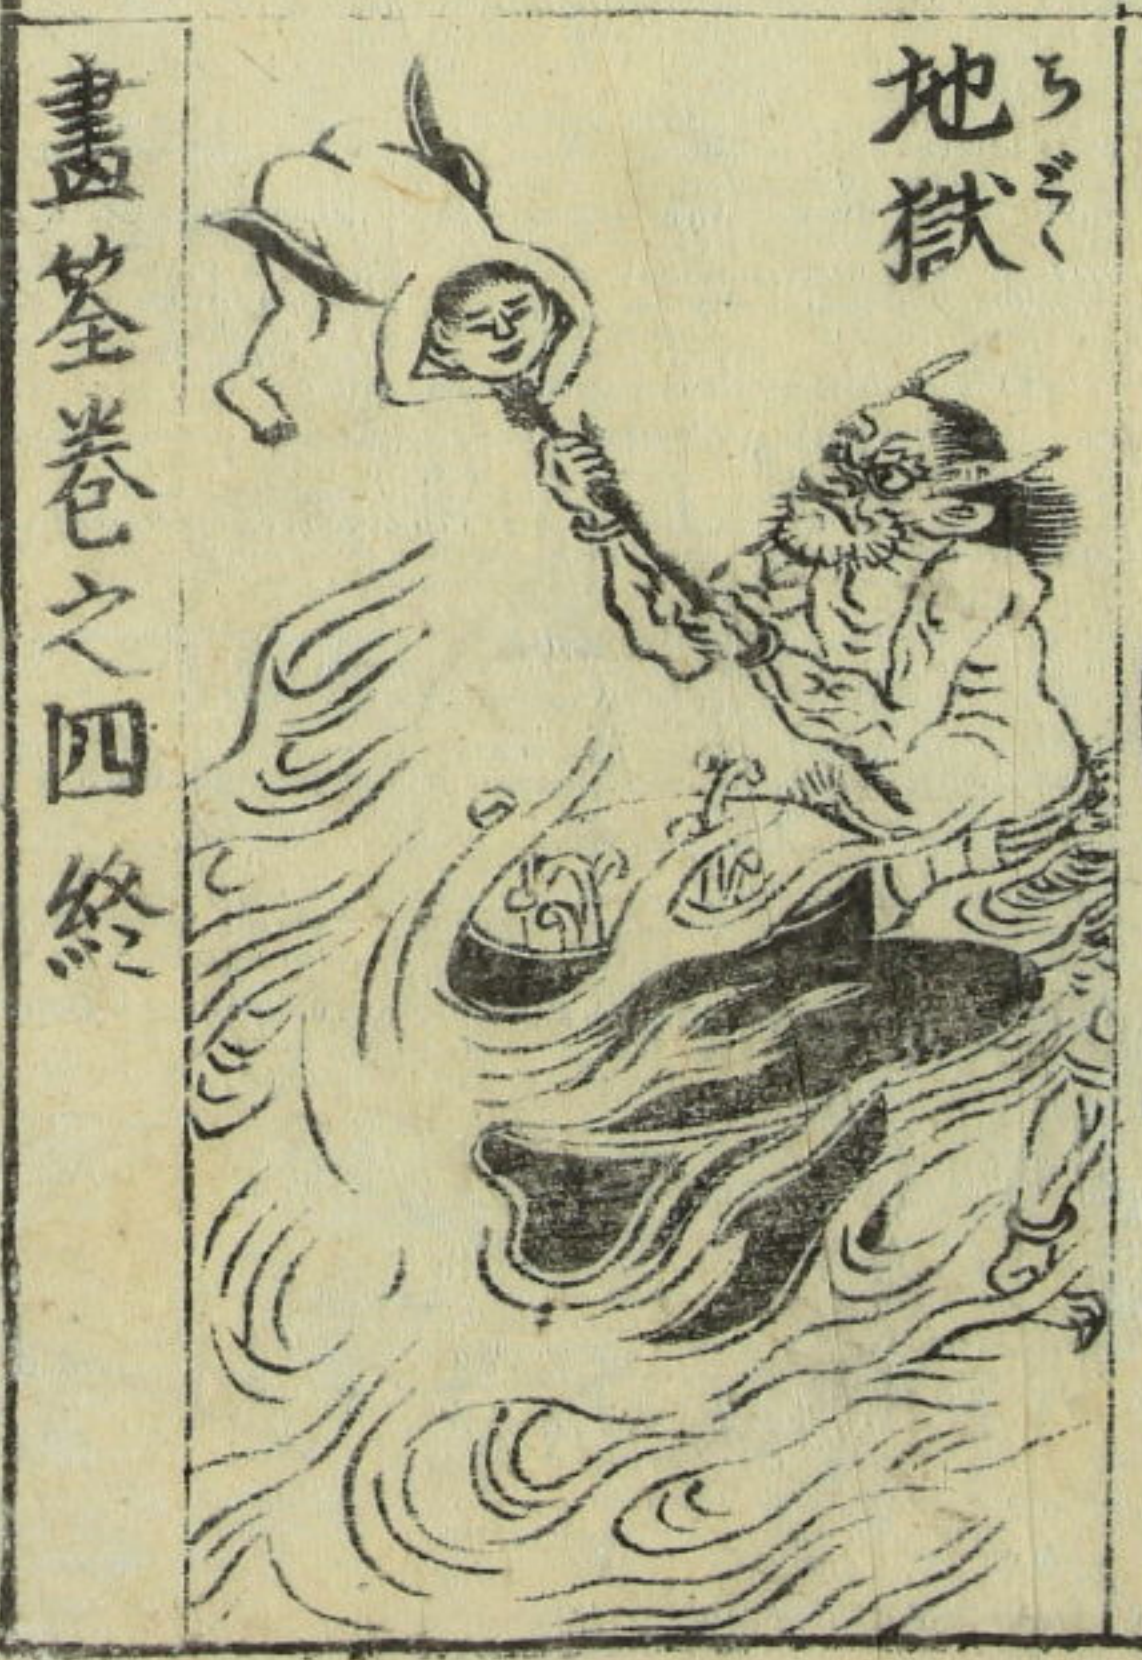 地獄
ちごく
畫筌卷之四終